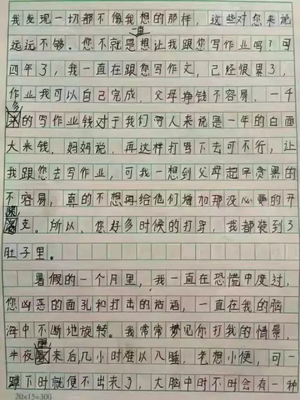 我发现一切都不像我想的那样，这些对您来说
远远不够。您不就是想让我跟您写作业吗？可
四年了，我一直在跟您写作文，已经恨累了，
作业我可以自己完成，父母挣钱不容易，一千
多的写作业钱对于我们穷人来说是一年的白面
大米钱。妈妈说，再这样打骂下去可不行，让
我跟您去写作业，可我一想到父母起早贪黑的
不容易，真的不想再给他们增加那没必要的开
支。所以，您好多时候的打骂，我都装到了
肚子里。
暑假的一个月里，我一直在恐慌中度过，
您凶恶的面孔和打击的话语，一直在我的脑
海中不断地旋转。我常常梦见你打我的情景，
半夜醒来后几小时难以入睡，老想小便，可一
蹲下时就便不出来了，大脑中时不时会有一种
20×15=300